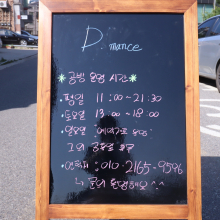 D. mance
공방 운영 시간
• 평일 11:00~21:30
• 토요일 13:00~18:00
• 일요일 예약제로 운영
그외 공휴일 휴무
• 연락처: 010-2165-9596
↳ 문의 환영해요 ^^